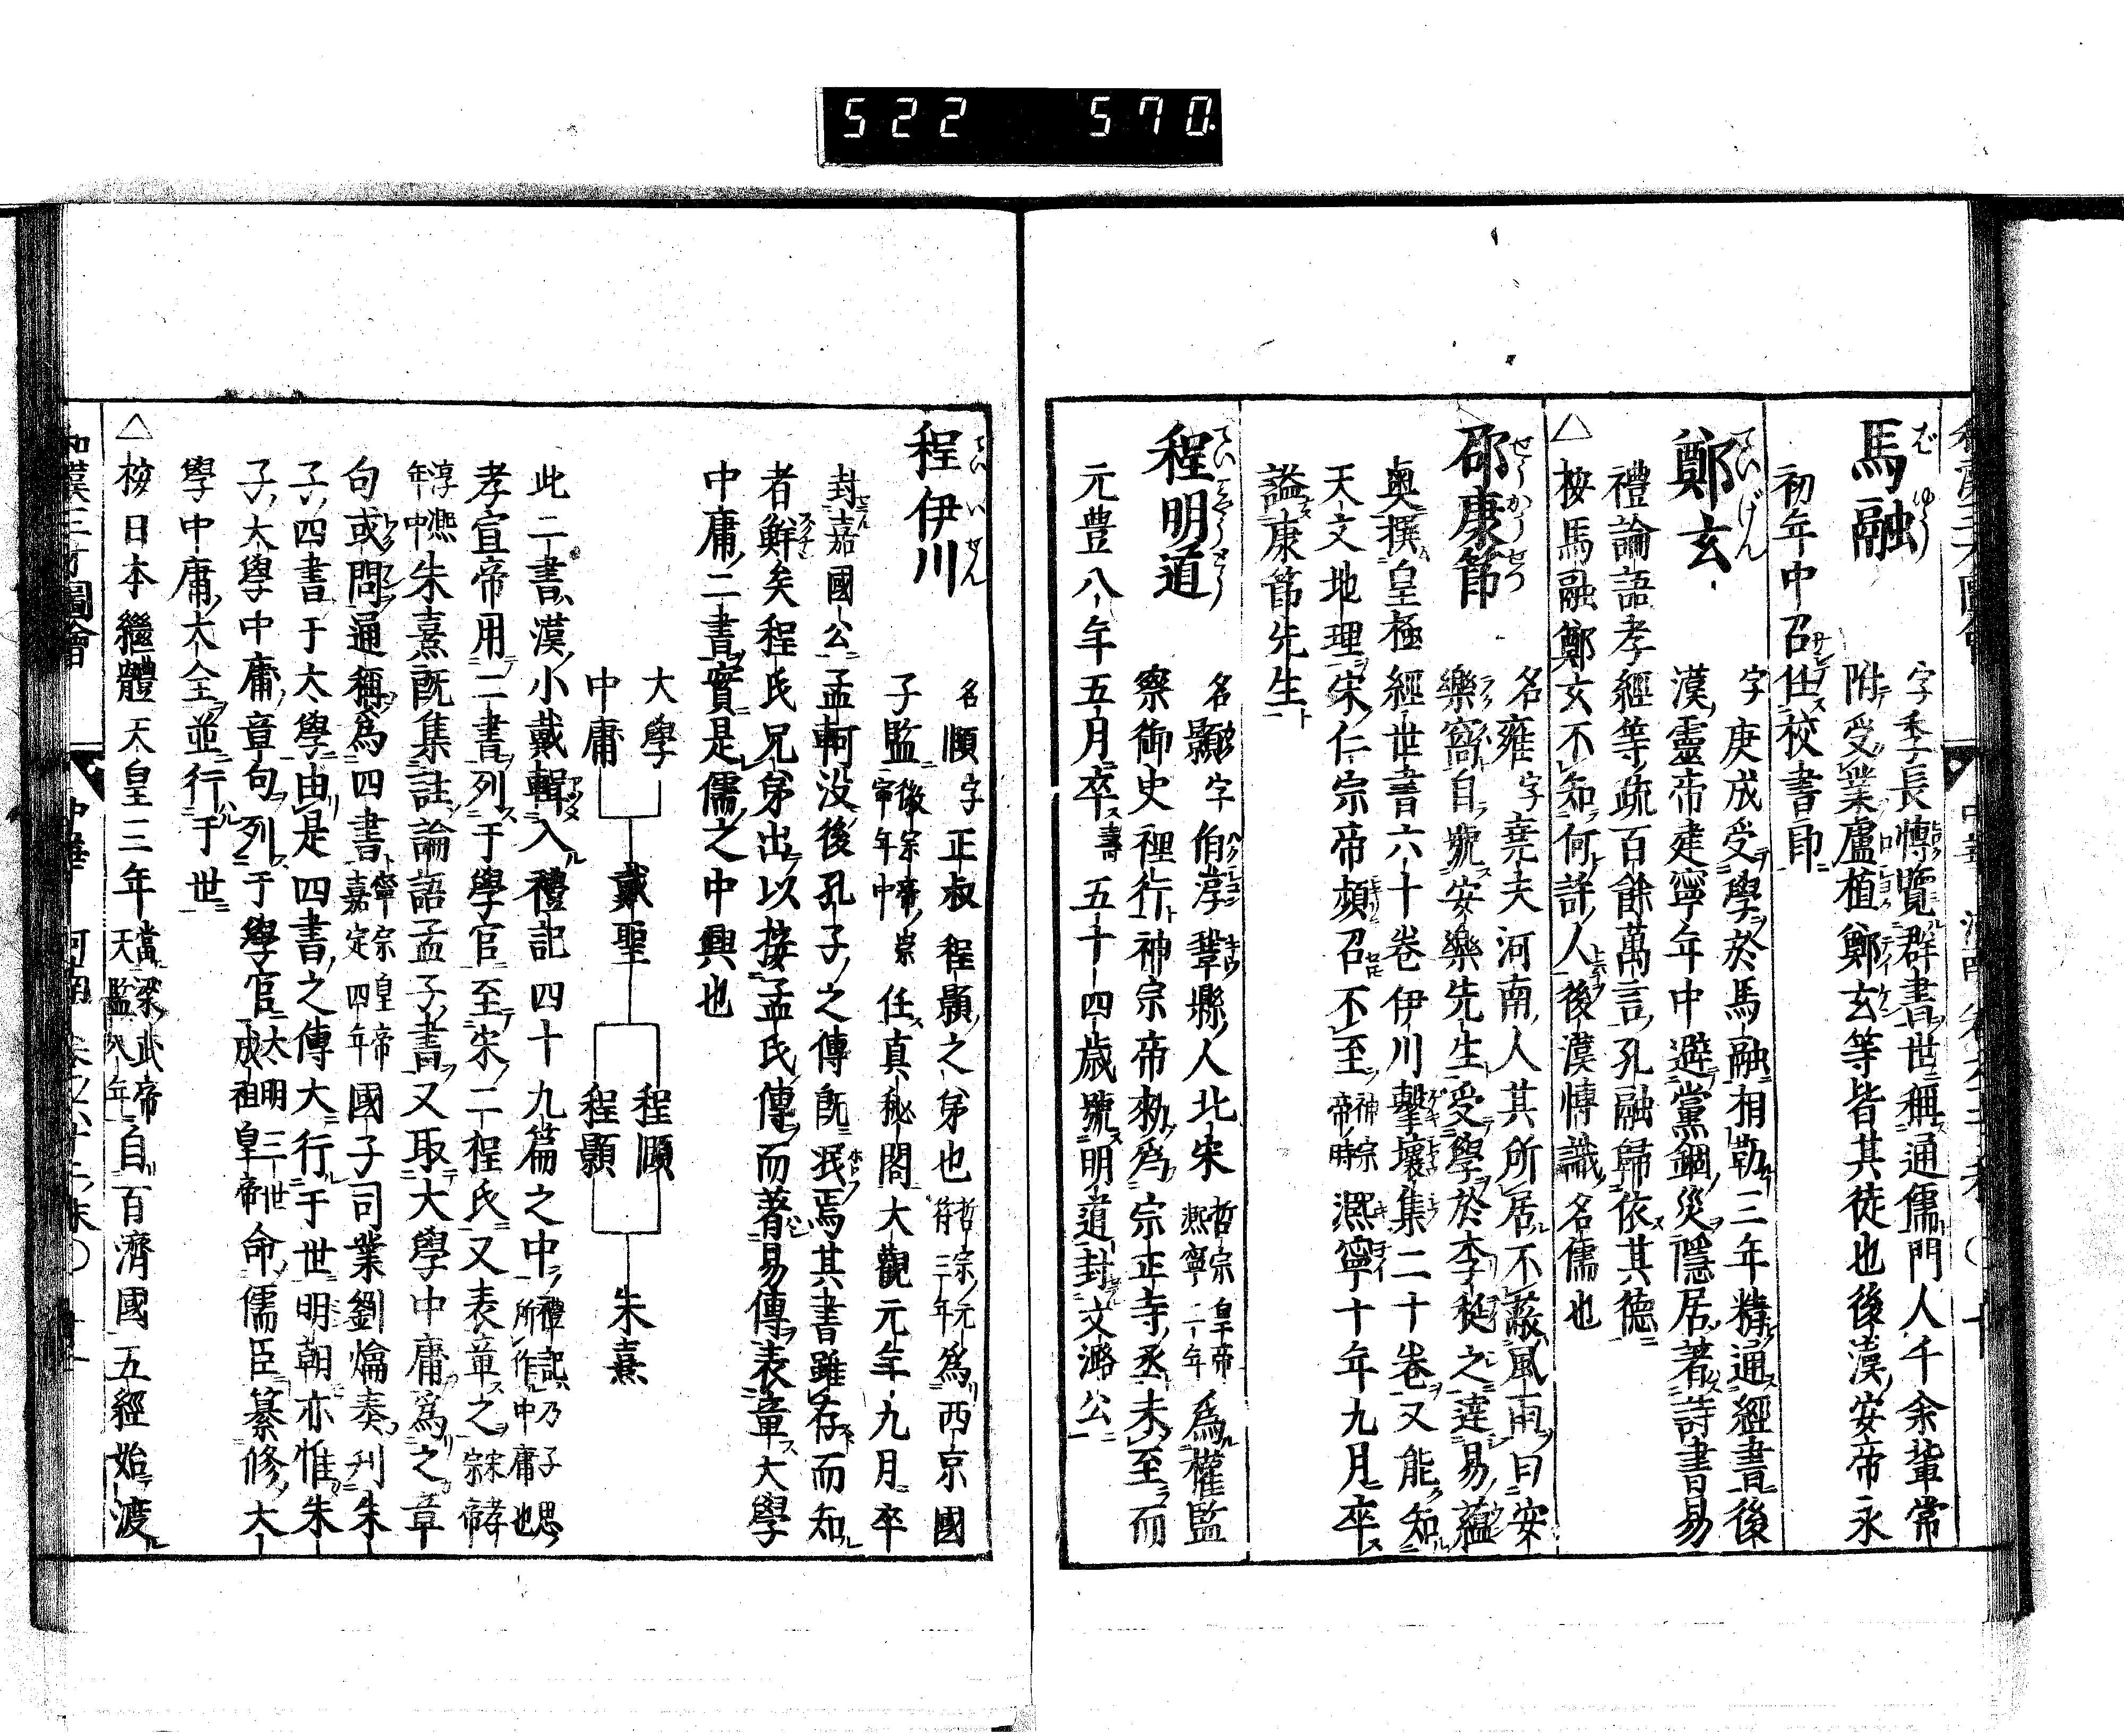 522 570.
馬融 字季長博覽群書世稱通儒門人千余輩常
附受業盧植鄭玄等皆其徒也後漢安帝永
初年中召仕校書郎
鄭玄 字庚成受學於馬融相勤三年精通經書後
漢靈帝建寧年中避黨錮災隱居著詩書易
禮論語孝經等疏百餘萬言孔融歸依其德
△按馬融鄭玄不知何許人後漢博識名儒也
邵康節 名雍字堯夫河南人其所居不蔽風雨曰安
樂窩自號安樂先生受學於李挺之達易蘊
奧撰皇極經世書六十卷伊川擊壤集二十卷又能知
天文地理宋仁宗帝頻召不至神宗帝時熙寧十年九月卒
謚康節先生
程明道 名顥字伯淳鞏縣人北宋哲宗皇帝熙寧二年為權監
察御史裡行神宗帝勅為宗正寺丞未至而
元豊八年五月卒壽五十四歲號明道封文潞公
程伊川 名頤字正叔程顥之弟也哲宗元符三年為西京國
子監徽宗帝崇寧年中任直秘閣大觀元年九月卒
封嘉國公孟軻没後孔子之傳既泯焉其書雖存而知
者鮮矣程氏兄弟出以接孟氏傳而著易傳表章大學
中庸二書實是儒之中興也
大學
中庸
戴聖
程頤
程顥
朱熹
此二書漢小戴輯入禮記四十九篇之中禮記乃子思所作中庸也
孝宣帝用二書列于學官至宋二程氏又表章之宋孝宗帝
淳熙年中朱熹既集註論語孟子書又取大學中庸為之章
句或問通稱為四書寧宗皇帝嘉定四年國子司業劉爚奏刊朱
子四書于太學由是四書之傳大行于世明朝亦惟朱
子大學中庸章句列于學官太明三世成祖皇帝命儒臣纂修大
學中庸大全並行于世
△按日本繼體天皇三年當梁武帝天監八年自百濟國五經始渡